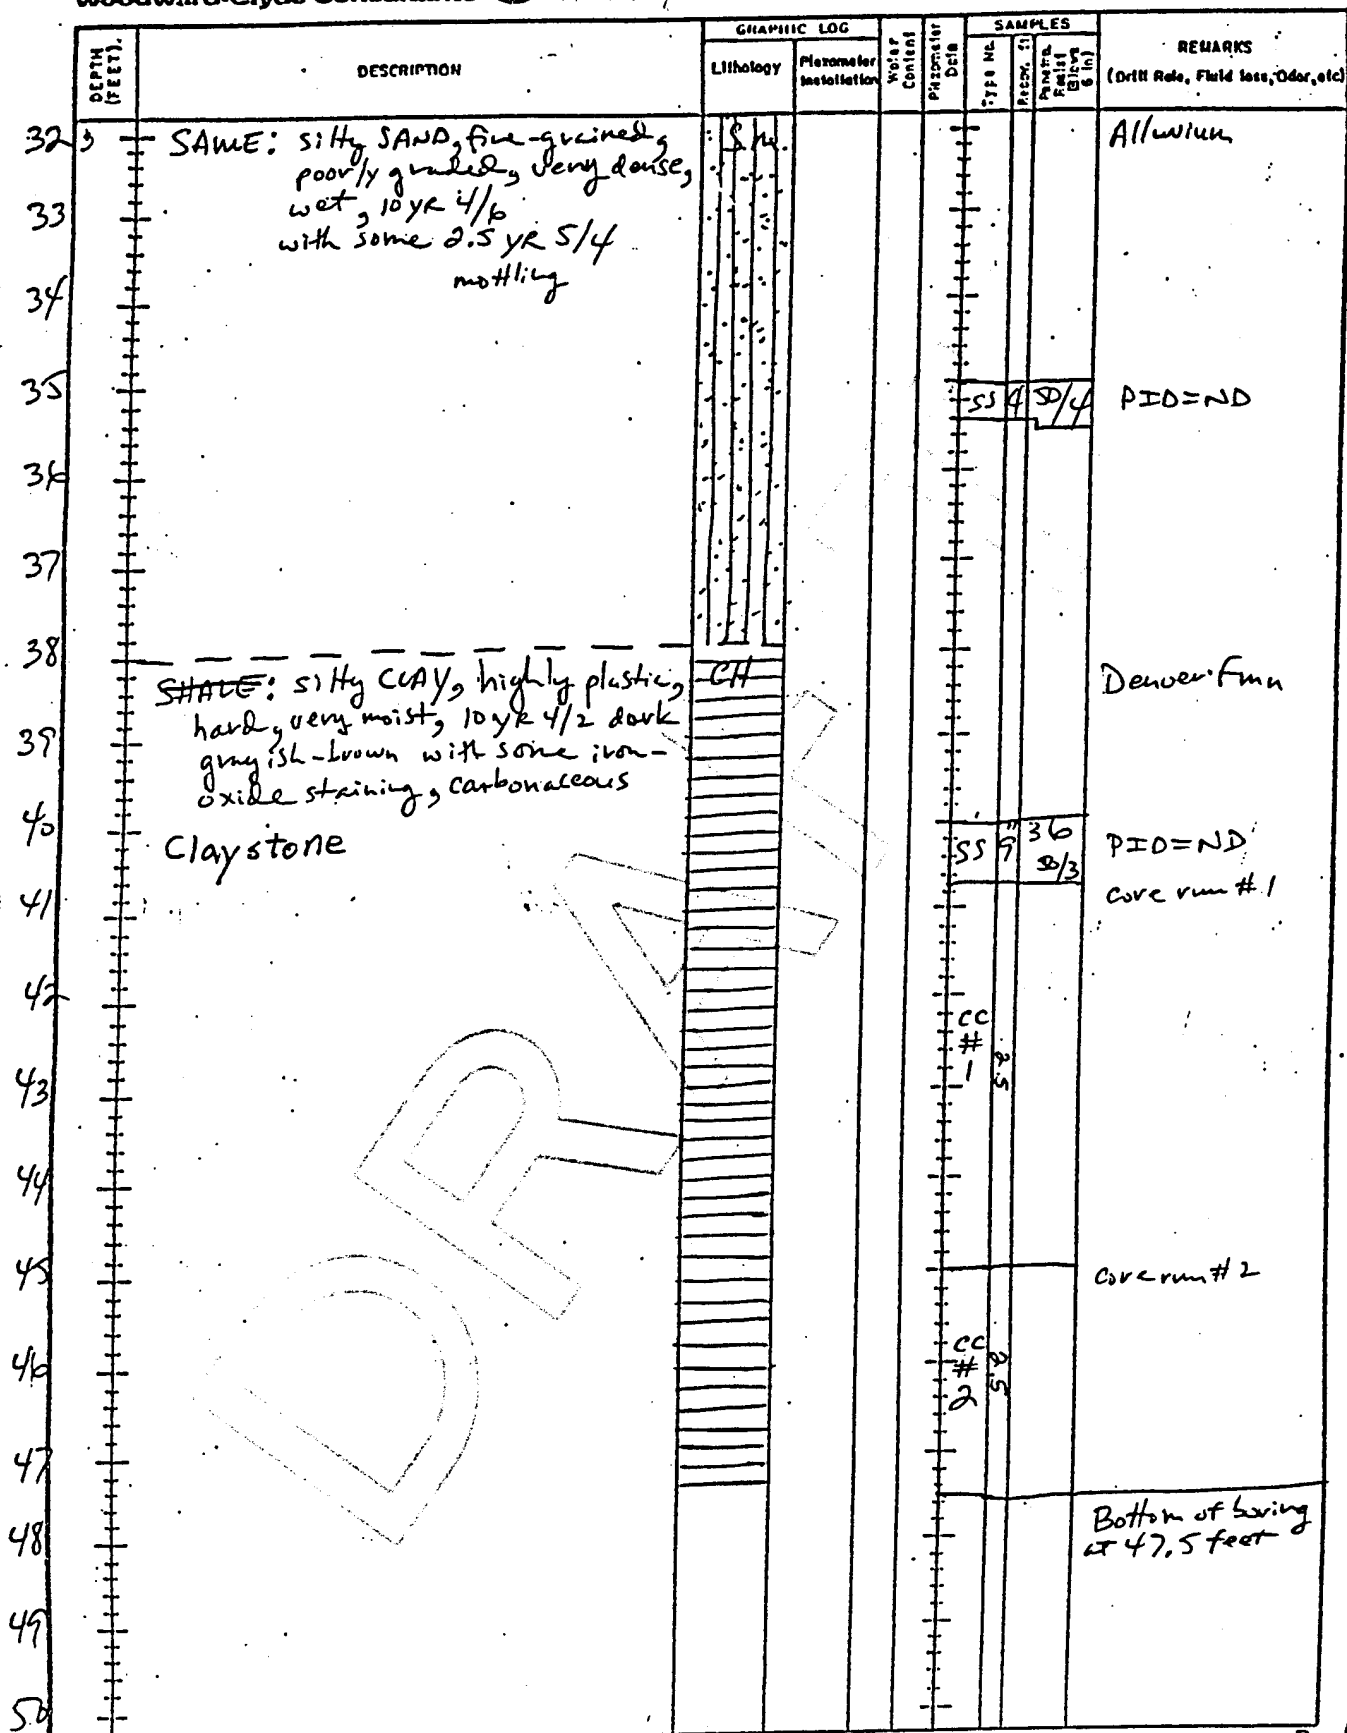 Woodward-Clyde Consultants
DEPTH (FEET)
DESCRIPTION
GRAPHIC LOG
Lithology
Piezometer Installation
Water Content
Piezometer Data
SAMPLES
Type No.
Recov. ft
Penetra. Resist (Blows 6 in)
REMARKS
(Drill Rate, Fluid loss, Odor, etc)
32
SAME: silty SAND, fine-grained,
poorly graded, very dense,
wet, 10 yR 4/6
with some 2.5 yR 5/4
mottling
SM
Alluvium
33
34
35
SS 4 50/4
PID=ND
36
37
38
SHALE: silty CLAY, highly plastic,
hard, very moist, 10 yR 4/2 dark
grayish-brown with some iron-
oxide staining, carbonaceous
CH
Denver Fmn
39
40
Claystone
SS 9" 36
50/3
PID=ND
core run #1
41
42
CC
#
1
2.5
43
44
45
core run #2
46
CC
#
2
2.5
47
Bottom of boring
at 47.5 feet
48
49
50
DRAFT